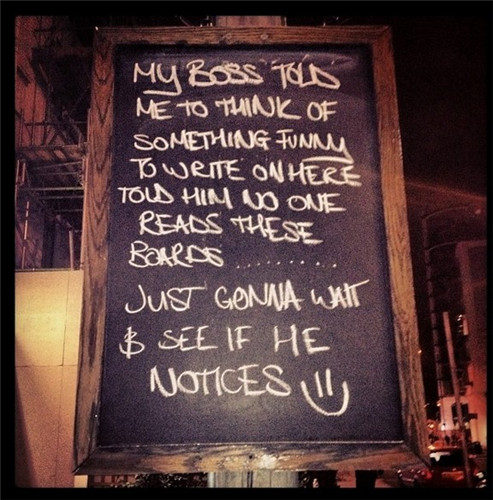 MY BOSS TOLD
ME TO THINK OF
SOMETHING FUNNY
TO WRITE ON HERE
TOLD HIM NO ONE
READS THESE
BOARDS .........
JUST GONNA WAIT
& SEE IF HE
NOTICES =)